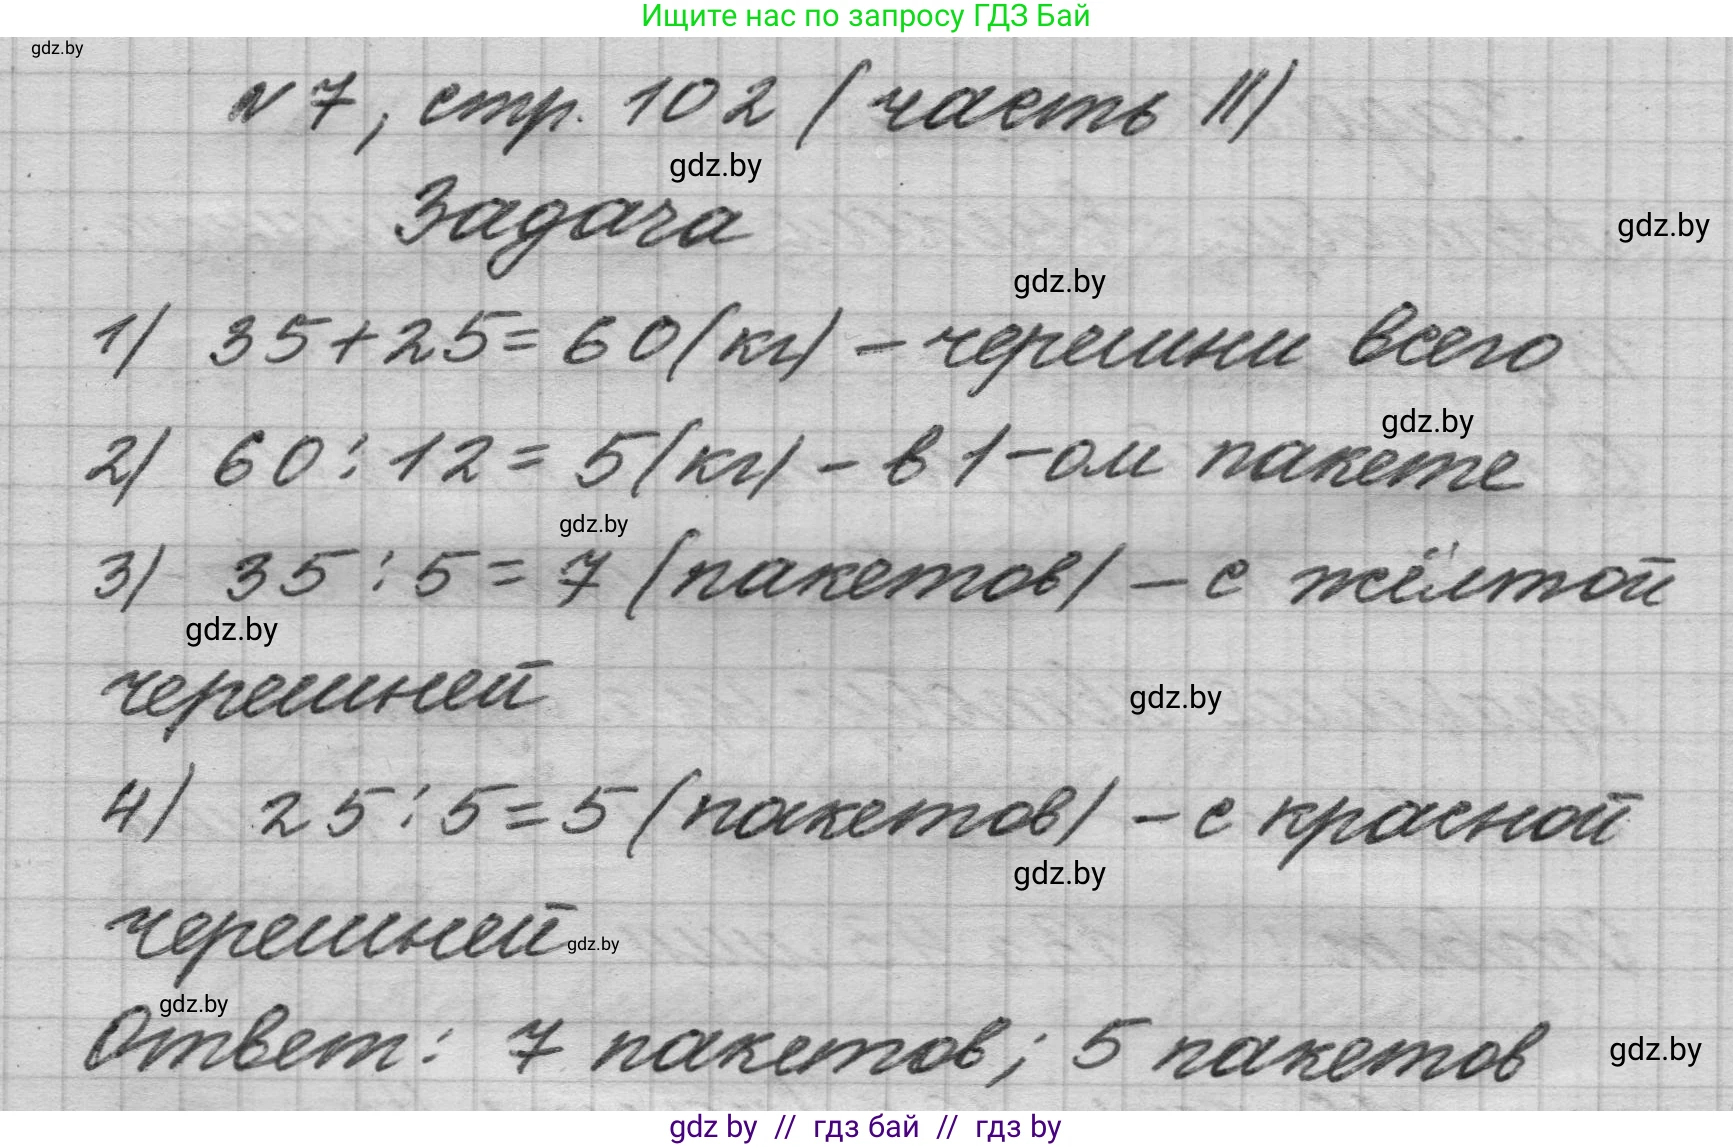 Ищите нас по запросу ГДЗ Бай
gdz.by
№ 7, стр. 102 (часть II)
gdz.by
Задача
gdz.by
gdz.by
1) 35+25=60(кг) – черешни всего
gdz.by
2) 60:12=5(кг) – в 1-ом пакете
gdz.by
3) 35:5=7 (пакетов) – с жёлтой
gdz.by
черешней
gdz.by
4) 25:5=5 (пакетов) – с красной
gdz.by
черешней
gdz.by
gdz.by
Ответ: 7 пакетов; 5 пакетов
gdz.by
gdz by // гдз бай // гдз by